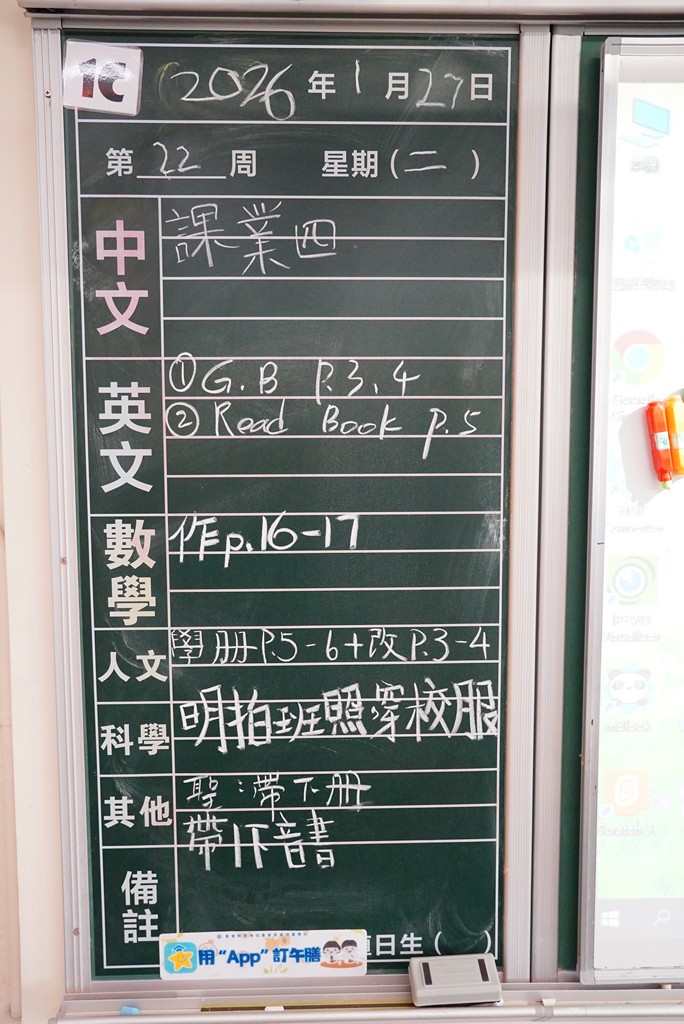 1C
2026年1月27日
第22周 星期(二)
中文
課業四
英文
① G.B P.3、4
② Read Book p.5
數學
作p.16-17
人文
學冊P.5-6+改P.3-4
科學
明拍班照穿校服
其他
聖:帶下冊
帶1下音書
備註
用“App”訂午膳
日生( )